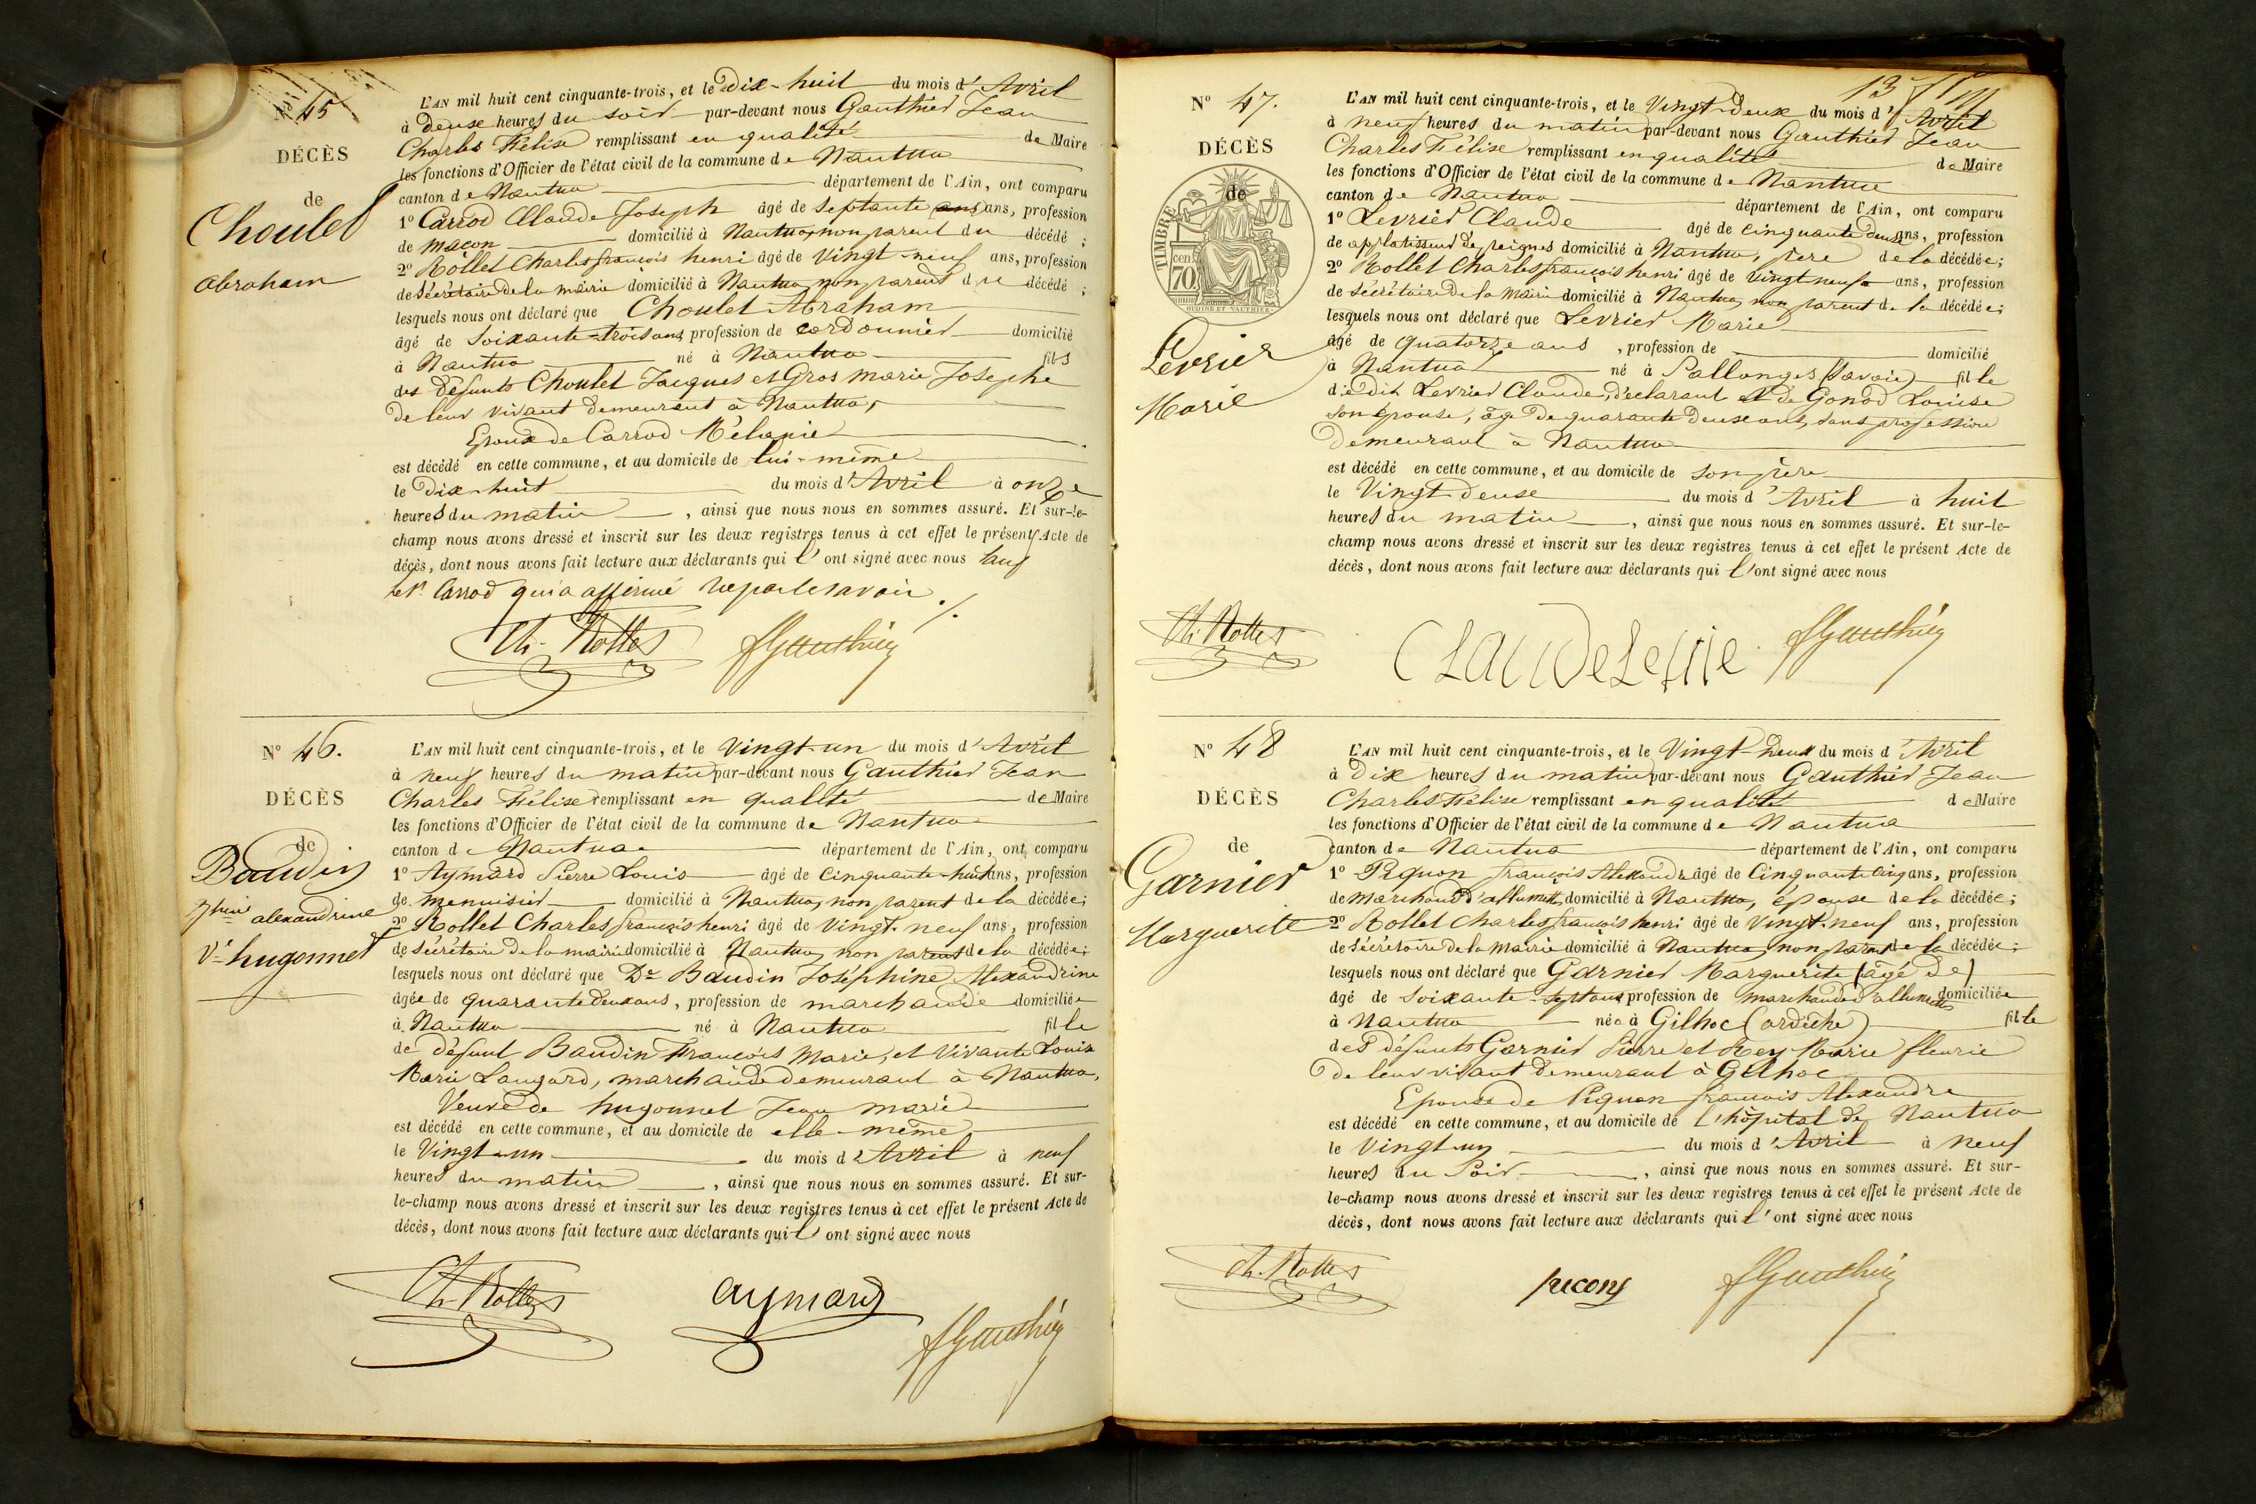 N° 45
DÉCÈS
de
Choulet
abraham
L'AN mil huit cent cinquante-trois, et le Dix-huit du mois d'Avril
à Deux heures du soir par-devant nous Gauthier Jean
Charles Félix remplissant en qualité de Maire
les fonctions d'Officier de l'état civil de la commune de Nantua
canton de Nantua département de l'Ain, ont comparu
1° Carrod Claude Joseph âgé de septante ans ans, profession
de maçon domicilié à Nantua, non parent du décédé ;
2° Rollet Charles françois henri âgé de Vingt-neuf ans, profession
de Sécrétaire de la mairie domicilié à Nantua, non parent du décédé ;
lesquels nous ont déclaré que Choulet Abraham
âgé de soixante-trois ans, profession de cordonnier domicilié
à Nantua né à Nantua fils
des défunts Choulet Jacques et Gros Marie Josephe
de leur vivant demeurant à Nantua,
Epoux de Carrod Mélanie
est décédé en cette commune, et au domicile de lui-même
le Dix-huit du mois d'Avril à onze
heures du matin, ainsi que nous nous en sommes assuré. Et sur-le-
champ nous avons dressé et inscrit sur les deux registres tenus à cet effet le présent Acte de
décès, dont nous avons fait lecture aux déclarants qui l'ont signé avec nous sauf
le Sr. Carrod qui a affirmé ne pas le savoir ./.
Ch. Rollet fGauthier
N° 46.
DÉCÈS
de
Baudin
Jphine alexandrine
Ve hugonnet
L'AN mil huit cent cinquante-trois, et le Vingt-un du mois d'Avril
à neuf heures du matin par-devant nous Gauthier Jean
Charles Félix remplissant en qualité de Maire
les fonctions d'Officier de l'état civil de la commune de Nantua
canton de Nantua département de l'Ain, ont comparu
1° Aymard Pierre Louis âgé de Cinquante-huit ans, profession
de menuisier domicilié à Nantua, non parent de la décédée ;
2° Rollet Charles françois henri âgé de Vingt-neuf ans, profession
de sécrétaire de la mairie domicilié à Nantua, non parent de la décédée ;
lesquels nous ont déclaré que De Baudin Joséphine Alexandrine
âgée de quarante deux ans, profession de marchande domiciliée
à Nantua né à Nantua fille
de défunt Baudin François Marie, et Vivante Louise
Marie Laugard, marchande demeurant à Nantua,
Veuve de hugonnet Jean marie
est décédé en cette commune, et au domicile de elle-même
le Vingt-un du mois d'Avril à neuf
heures du matin, ainsi que nous nous en sommes assuré. Et sur-
le-champ nous avons dressé et inscrit sur les deux registres tenus à cet effet le présent Acte de
décès, dont nous avons fait lecture aux déclarants qui l'ont signé avec nous
Ch. Rollet aymard fGauthier
13
N° 47.
DÉCÈS
de
TIMBRE
70 cen
Levrier
Marie
L'AN mil huit cent cinquante-trois, et le Vingt-deux du mois d'Avril
à neuf heures du matin par-devant nous Gauthier Jean
Charles Félix remplissant en qualité de Maire
les fonctions d'Officier de l'état civil de la commune de Nantua
canton de Nantua département de l'Ain, ont comparu
1° Levrier Claude âgé de cinquante deux ans, profession
de applatisseur de peignes domicilié à Nantua, père de la décédée ;
2° Rollet Charles françois henri âgé de vingt neuf ans, profession
de Sécrétaire de la Mairie domicilié à Nantua, non parent de la décédée ;
lesquels nous ont déclaré que Levrier Marie
âgé de quatorze ans, profession de domicilié
à Nantua né à Sallanges (Savoie) fille
du dit Levrier Claude, déclarant et de Gonod Louise
son épouse, âgée de quarante deux ans, sans profession
Demeurant à Nantua
est décédé en cette commune, et au domicile de son père
le Vingt-deux du mois d'Avril à huit
heures du matin, ainsi que nous nous en sommes assuré. Et sur-le-
champ nous avons dressé et inscrit sur les deux registres tenus à cet effet le présent Acte de
décès, dont nous avons fait lecture aux déclarants qui l'ont signé avec nous
Ch. Rollet fGauthier
N° 48
DÉCÈS
de
Garnier
Marguerite
L'AN mil huit cent cinquante-trois, et le Vingt-deux du mois d'Avril
à Dix heures du matin par-devant nous Gauthier Jean
Charles Félix remplissant en qualité de Maire
les fonctions d'Officier de l'état civil de la commune de Nantua
canton de Nantua département de l'Ain, ont comparu
1° Piquon françois Alexandre âgé de Cinquante cinq ans, profession
de Marchand d'allumettes, domicilié à Nantua, épouse de la décédée ;
2° Rollet Charles françois henri âgé de Vingt-neuf ans, profession
de Sécrétaire de la Mairie domicilié à Nantua, non parent de la décédée ;
lesquels nous ont déclaré que Garnier Marguerite (âgé de)
âgé de soixante-sept ans profession de marchande d'allumettes domiciliée
à Nantua née à Gilhoc (ardèche) fille
des défunts Garnier Pierre et Rey Marie fleurie
de leur vivant demeurant à Gilhoc
Epouse de Piquon françois Alexandre
est décédé en cette commune, et au domicile de l'hôpital de Nantua
le Vingt-un du mois d'Avril à neuf
heures du Soir, ainsi que nous nous en sommes assuré. Et sur-
le-champ nous avons dressé et inscrit sur les deux registres tenus à cet effet le présent Acte de
décès, dont nous avons fait lecture aux déclarants qui l'ont signé avec nous
Ch. Rollet fGauthier